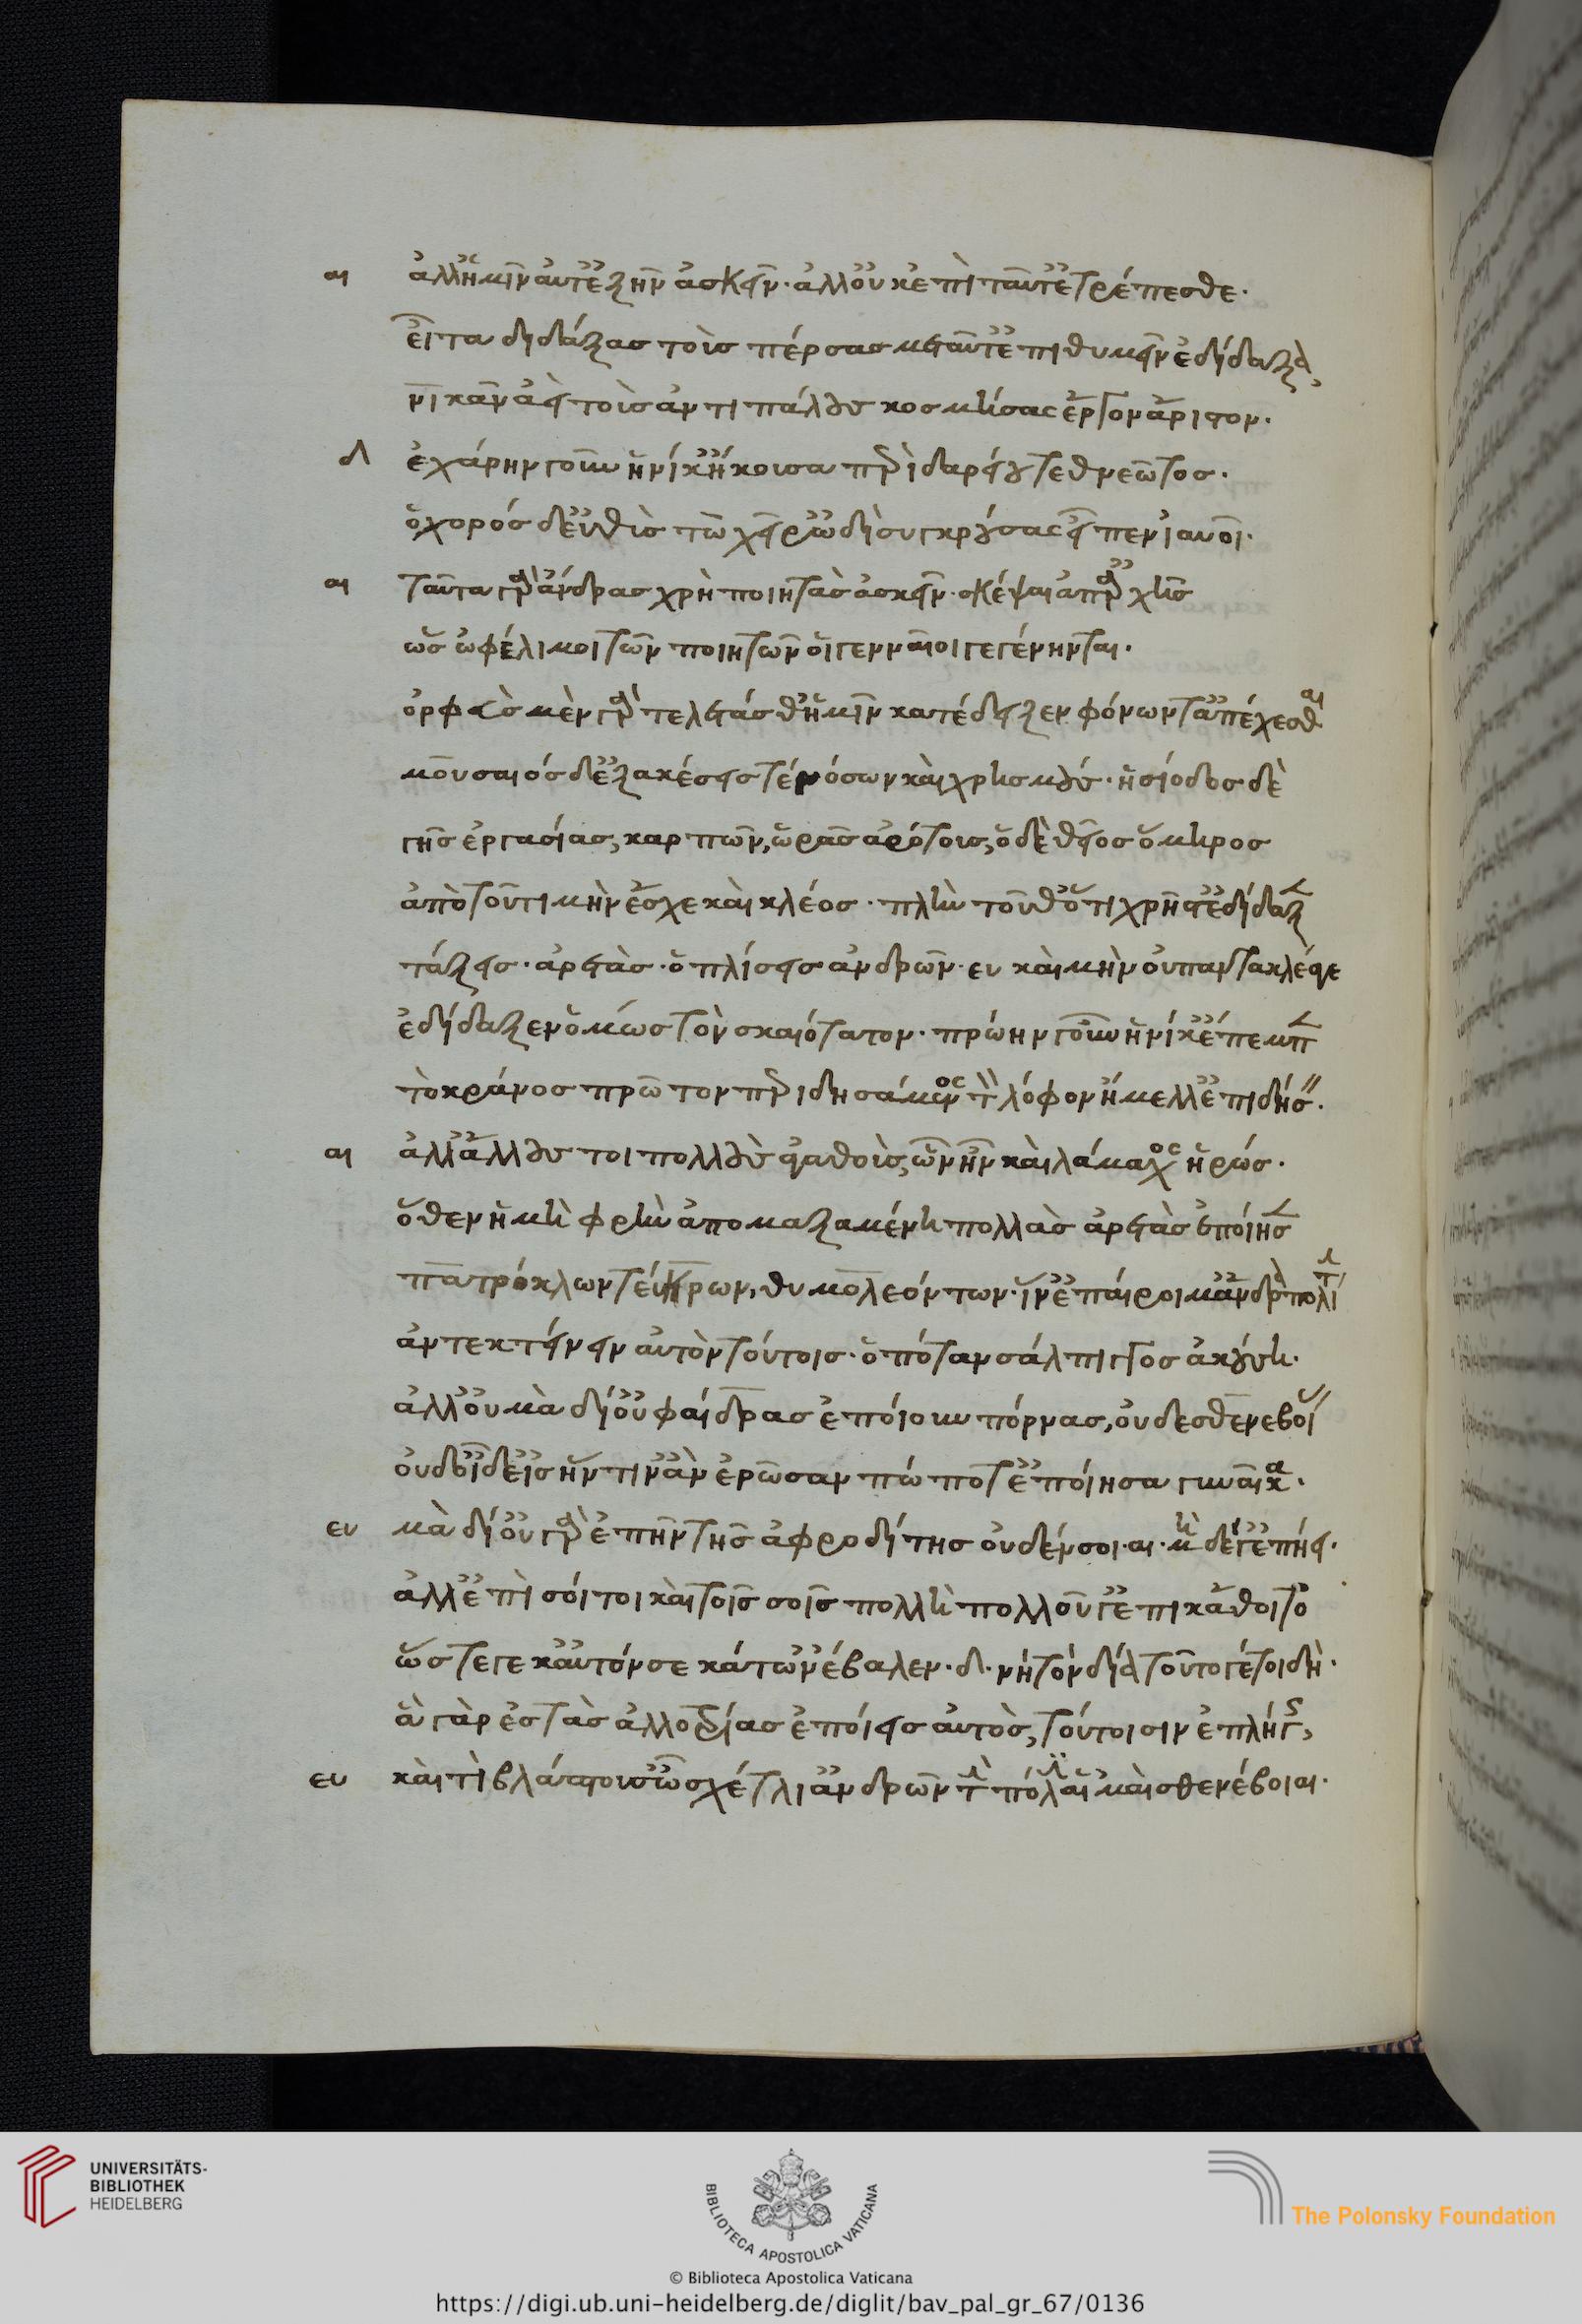 αι ἀλλ' ἡμῖν αὔτ' ἐξῆν ἀσκεῖν· ἀλλ' οὐκ ἐπὶ ταῦτ' ἐτρέπεσθε·
εἶτα διδάξας τοὺς πέρσας μετὰ ταῦτ' ἐπιθυμεῖν ἐδίδαξα,
νικᾶν ἀεὶ τοὺς ἀντιπάλους κοσμήσας ἔργον ἄριστον·
δ ἐχάρην γοῦν ἡνίκ' ἤκουσα περὶ δαρείου τεθνεῶτος·
ὁ χορός δ' εὐθὺς τὼ χεῖρ' ὡδὶ συγκρούσας εἶπεν ἰαυοῖ·
αι ταῦτα γὰρ ἄνδρας χρὴ ποιητὰς ἀσκεῖν· σκέψαι ἀπ' ἀρχῆς
ὡς ὠφέλιμοι τῶν ποιητῶν οἱ γενναῖοι γεγένηνται·
ὀρφεὺς μὲν γὰρ τελετάς θ' ἡμῖν κατέδειξεν φόνων τ' ἀπέχεσθαι
μουσαιός δ' ἐξακέσεις τε νόσων καὶ χρησμούς· ἡσίοδος δὲ
γῆς ἐργασίας, καρπῶν, ὥρας ἀρότοις, ὁ δὲ θεῖος ὅμηρος
ἀπὸ τοῦ τιμὴν ἔσχε καὶ κλέος· πλὴν τοῦθ' ὅτι χρήστ' ἐδίδαξεν
τάξεις· ἀρετὰς· ὁπλίσεις ἀνδρῶν· ευ καὶ μὴν οὐ παντακλέα γε
ἐδίδαξεν ὁμώς τὸν σκαιότατον· πρώην γοῦν ἡνίκ' ἔπεμπεν
τὸ κράνος πρῶτον περιδησάμενος τὸν λόφον ἤμελλ' ἐπιδήσειν·
αι ἀλλ' ἄλλους τοι πολλοὺς ἀγαθοὺς, ὧν ἦν καὶ λάμαχος ἥρως·
ὅθεν ἡμὴ φρὴν ἀπομαξαμένη πολλὰς ἀρετὰς ἐποίησεν
πατρόκλων τεύκρων, θυμολεόντων· ἵν' ἐπαίροιμ' ἄνδρα πολίτην
ἀντεκτείνειν αὐτὸν τούτοις· ὁπόταν σάλπιγγος ἀκούση·
ἀλλ' οὐ μὰ δί' οὐ φαίδρας ἐποίουν πόρνας, οὐδὲ σθενεβοίας
οὐδ' οἶδ' εἰς ἥντιν' ἂν ἐρῶσαν πώποτ' ἐποίησα γυναῖκα·
ευ μὰ δί' οὐ γὰρ ἐπῆν τῆς ἀφροδίτης οὐδέν σοι· αι· μὴ δέ γ' ἐπείη·
ἀλλ' ἐπὶ σοί τοι καὶ τοῖς σοῖς πολλὴ πολλοῦ γ' ἐπικάθοιτο
ὥστε γε καὐτόν σε κάτ' ὦν ἔβαλεν· δ· νὴ τὸν δία τοῦτό γέ τοι δὴ·
ἃ γὰρ ἐς τὰς ἀλλοτρίας ἐποίεις αὐτὸς, τούτοισιν ἐπλήγης,
ευ καὶ τὶ βλάπτουσ' ὦ σχέτλι' ἀνδρῶν τὴν πόλιν αἱ 'μαὶ σθενέβοιαι·
UNIVERSITÄTS-
BIBLIOTHEK
HEIDELBERG
BIBLIOTECA APOSTOLICA VATICANA
The Polonsky Foundation
© Biblioteca Apostolica Vaticana
https://digi.ub.uni-heidelberg.de/diglit/bav_pal_gr_67/0136